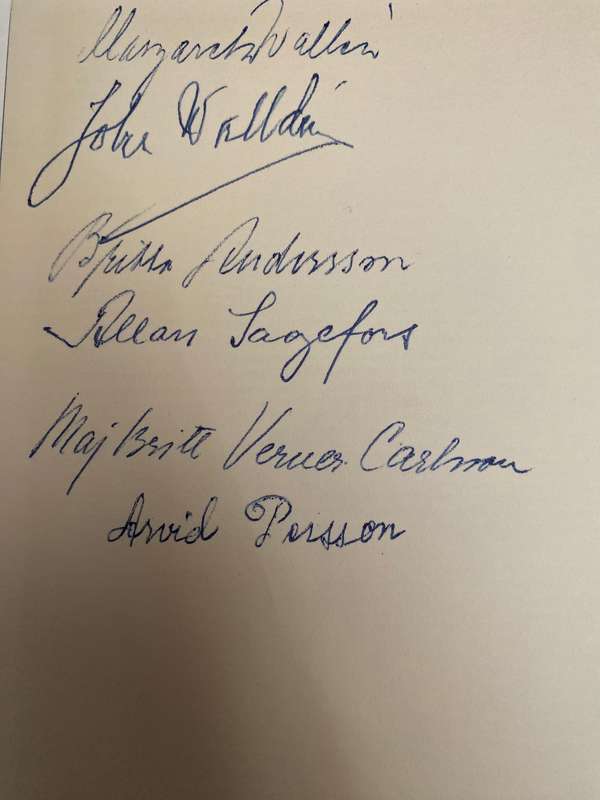 Margareta Wallén
John Walldén
Britta Andersson
Allan Sagefors
Maj Britt Verner Carlsson
Arvid Persson